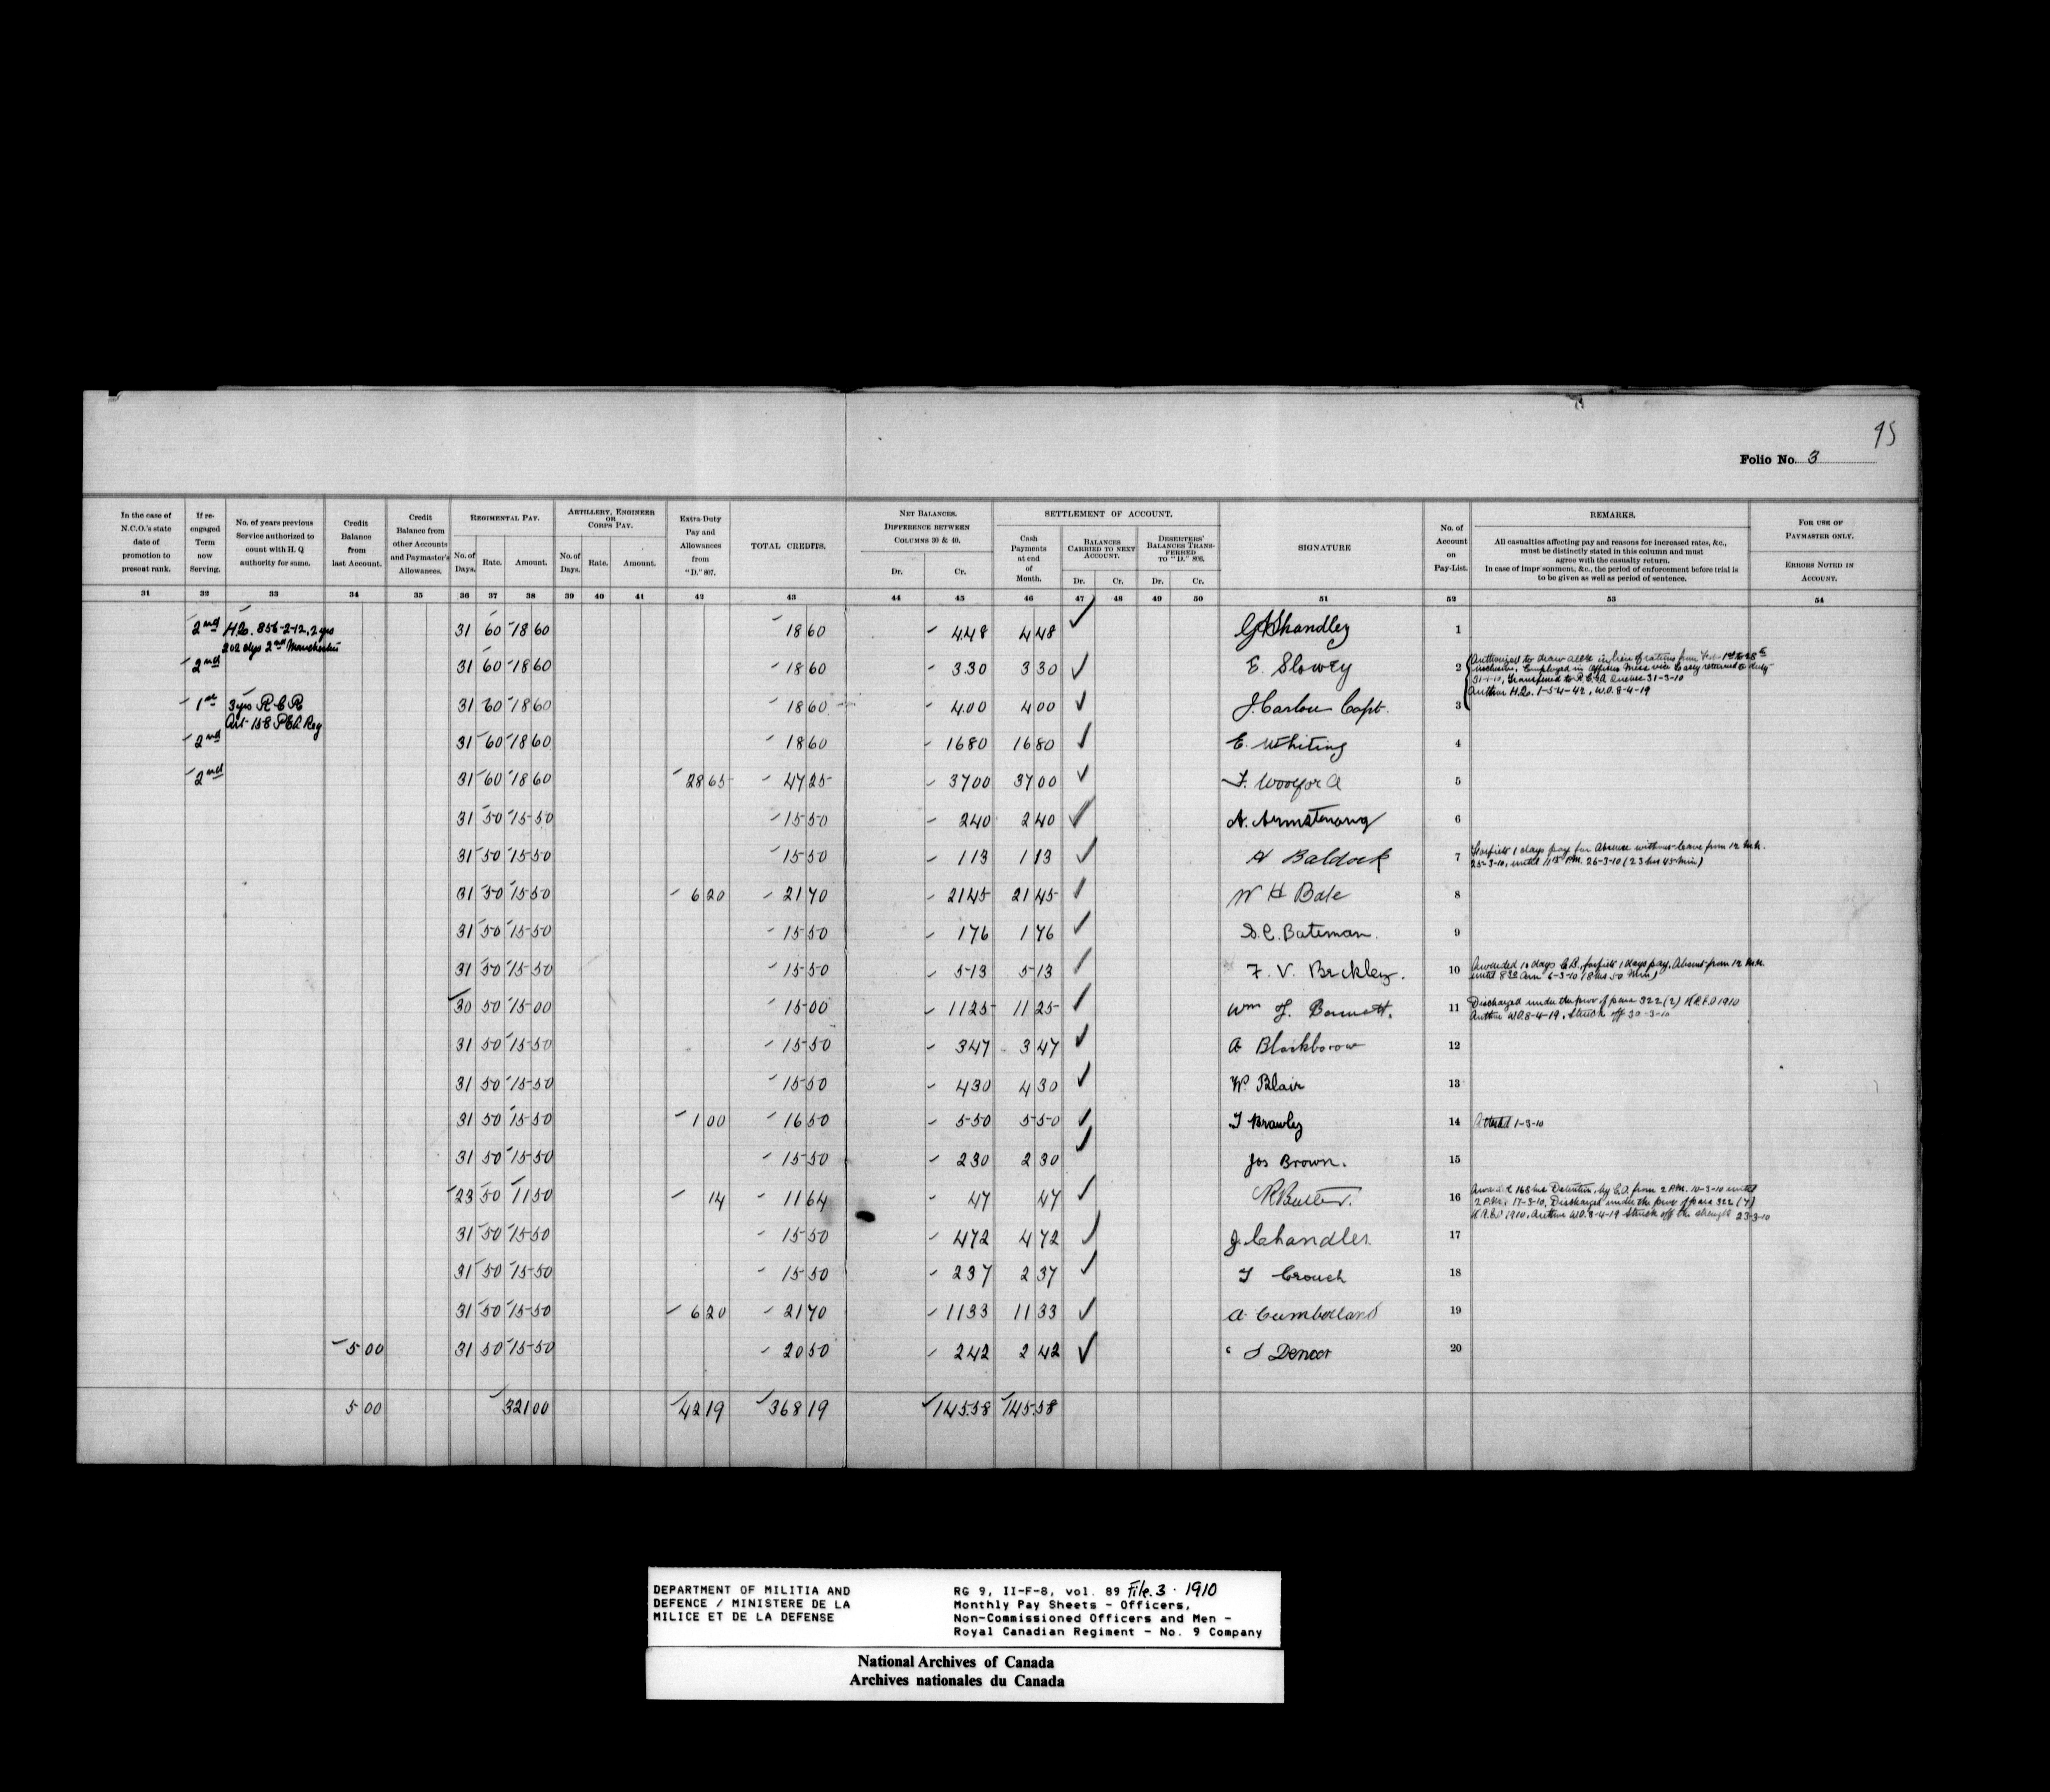 95
Folio No. 3
In the case of N.C.O.'s state date of promotion to present rank.
If re-engaged Term now Serving.
No. of years previous Service authorized to count with H. Q authority for same.
Credit Balance from last Account.
Credit Balance from other Accounts and Paymaster's Allowances.
REGIMENTAL PAY.
No. of Days. Rate. Amount.
ARTILLERY, ENGINEER OR CORPS PAY.
No. of Days. Rate. Amount.
Extra-Duty Pay and Allowances from "D." 807.
TOTAL CREDITS.
NET BALANCES.
DIFFERENCE BETWEEN COLUMNS 30 & 40.
Dr. Cr.
SETTLEMENT OF ACCOUNT.
Cash Payments at end of Month.
BALANCES CARRIED TO NEXT ACCOUNT.
Dr. Cr.
DESERTERS' BALANCES TRANSFERRED TO "D." 806.
Dr. Cr.
SIGNATURE
No. of Account on Pay-List.
REMARKS.
All casualties affecting pay and reasons for increased rates, &c.,
must be distinctly stated in this column and must
agree with the casualty return.
In case of imprisonment, &c., the period of enforcement before trial is
to be given as well as period of sentence.
FOR USE OF PAYMASTER ONLY.
ERRORS NOTED IN ACCOUNT.
31 32 33 34 35 36 37 38 39 40 41 42 43 44 45 46 47 48 49 50 51 52 53 54
2nd H.Q. 856-2-12. 2 yrs 31 60 18 60 18 60 4.48 4 48 Shandley 1
202 dys 2nd Manchester
2nd 31 60 18 60 18 60 3.30 3 30 E. Slowey 2
Authorized to draw in lieu of rations from
inclusive. Employed in Officers Mess vice Casey returned to duty
31-1-10, Transferred to Quebec 31-3-10
Author H.Q. 1-54-42, W.O. 8-4-19
1st 3 yrs R C R 31 60 18 60 18 60 4.00 4 00 J. Carlow Capt. 3
Art 158 Reg
2nd 31 60 18 60 18 60 16 80 16 80 E. Whiting 4
2nd 31 60 18 60 28 65 47 25 37 00 37 00 F. Woolford 5
31 50 15 50 15 50 2 40 2 40 A. Armstrong 6
31 50 15 50 15 50 1 13 1 13 A Baldock 7
Forfeits 1 days pay for Absence without leave from 12
25-3-10, until 11 45 PM. 26-3-10 (23 hrs 45 min)
31 50 15 50 6 20 21 70 21 45 21 45 W H Bale 8
31 50 15 50 15 50 1 76 1 76 S. C. Bateman. 9
31 50 15 50 15 50 5 13 5 13 F. V. Beckley. 10
Awarded 10 days C.B. forfeits 1 days pay, Absent from 12
until 8 50 Am 6-3-10 (8 hrs 50 Min)
30 50 15 00 15 00 11 25 11 25 Wm J. Bennett. 11
Discharged under the prov of para 322 (2) 1910
Author W.O. 8-4-19, Struck off 30-3-10
31 50 15 50 15 50 3 47 3 47 A Blackborow 12
31 50 15 50 15 50 4 30 4 30 W. Blair 13
31 50 15 50 1 00 16 50 5 50 5 50 J Brawley 14 1-3-10
31 50 15 50 15 50 2 30 2 30 Jos Brown. 15
23 50 11 50 14 11 64 47 47 R Butler. 16
Awarded 168 hrs Detention, by C.O. from 2 P.M. 10-3-10 until
2 P.M. 17-3-10. Discharged under the prov of para 322 (7)
1910, Author W.O. 8-4-19 Struck off the strength 23-3-10
31 50 15 50 15 50 4 72 4 72 J. Chandler. 17
31 50 15 50 15 50 2 37 2 37 T Crouch 18
31 50 15 50 6 20 21 70 11 33 11 33 A. Cumberland 19
5 00 31 50 15 50 20 50 2 42 2 42 20
5 00 321 00 42 19 368 19 145.58 145.58
DEPARTMENT OF MILITIA AND
DEFENCE / MINISTERE DE LA
MILICE ET DE LA DEFENSE
RG 9, II-F-8, vol. 89 File. 3 · 1910
Monthly Pay Sheets - Officers,
Non-Commissioned Officers and Men -
Royal Canadian Regiment - No. 9 Company
National Archives of Canada
Archives nationales du Canada